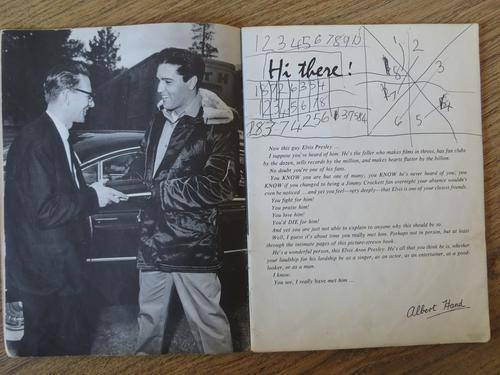 12345678910
Hi there!
1 2
8 3
7 4
6 5
Now this guy Elvis Presley ...
I suppose you've heard of him. He's the feller who makes films in threes, has fan clubs
by the dozen, sells records by the million, and makes hearts flutter by the billion.
No doubt you're one of his fans.
You KNOW you are but one of many; you KNOW he's never heard of you; you
KNOW if you changed to being a Jimmy Crockett fan overnight your absence wouldn't
even be noticed ... and yet you feel—very deeply—that Elvis is your closest friends.
You fight for him!
You praise him!
You love him!
You'd DIE for him!
And yet you are just not able to explain to anyone why this should be so.
Well, I guess it's about time you really met him. Perhaps not in person, but at least
through the intimate pages of this picture-stress book.
He's a wonderful person, this Elvis Aron Presley. He's all that you think he is, whether
your laudship for his lordship be as a singer, as an actor, as an entertainer, as a good-
looker, or as a man.
I know.
You see, I really have met him ...
Albert Hand